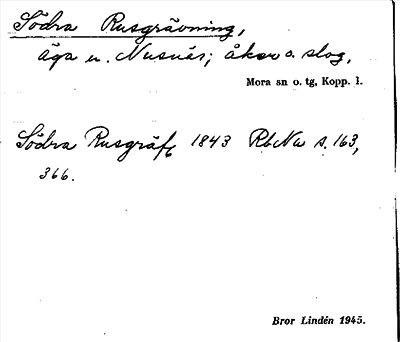 Södra Rusgrävning,
äga u. Nusnäs; åker o. slog,
Mora sn o. tg, Kopp. l.
Södra Rusgräf 1843 RbNa s. 163,
366.
Bror Lindén 1945.